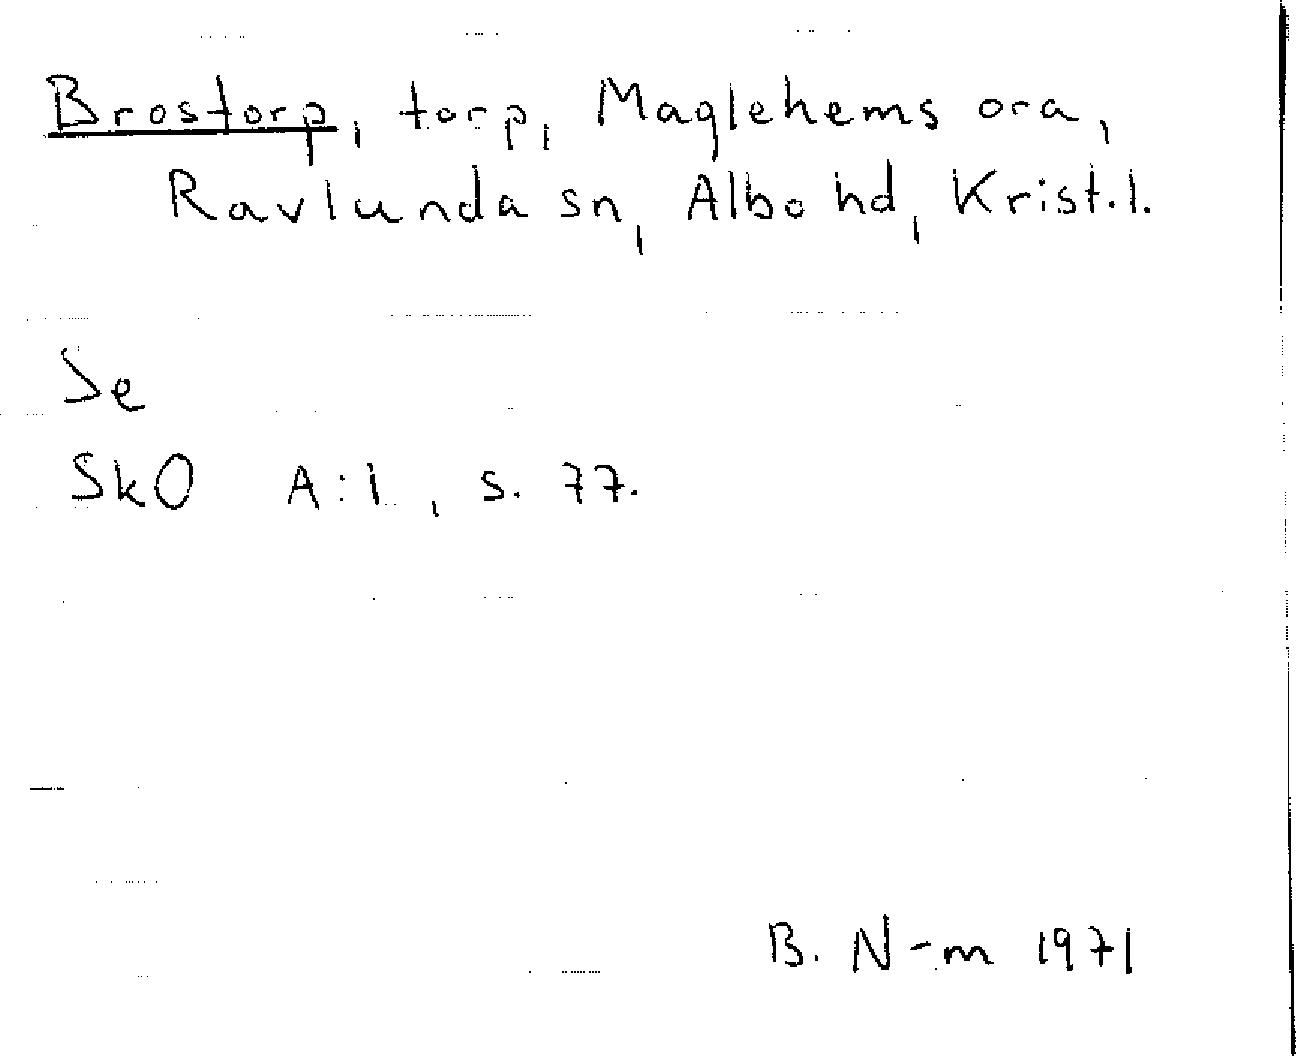 Brostorp, torp, Maglehems ora,
Ravlunda sn, Albo hd, Krist.l.
Se
SkO A:1, s. 77.
B. N-m 1971